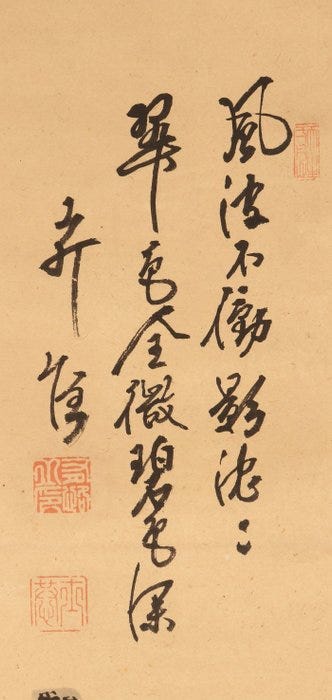 風波不動影沈〻
翠色全微碧色深